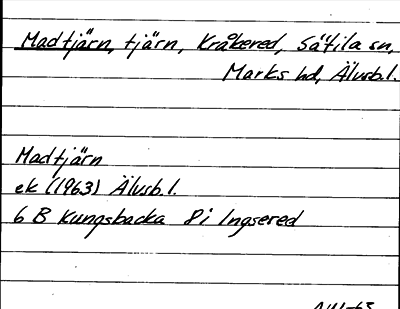 Madtjärn, tjärn, Kråkered, Sätila sn,
Marks hd, Älvsb.l.
Madtjärn
ek (1963) Älvsb.l.
6 B Kungsbacka 8i Ingsered